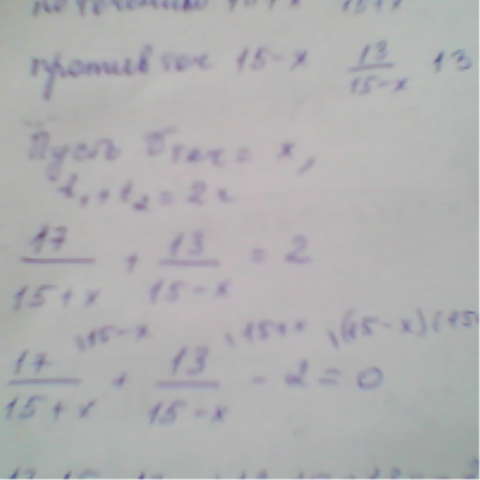 по течению 15+x
против теч 15-x 13/(15-x) 13
Пусть Vтеч = x,
t₁+t₂=2ч
17/(15+x) + 13/(15-x) = 2
17/(15+x) ,15-x + 13/(15-x) ,15+x - 2 ,(15-x)(15 = 0